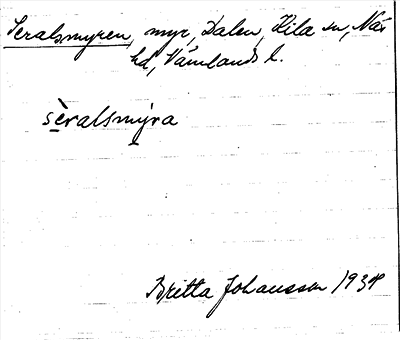 Seralsmyren, myr, Dalen, Kila sn, Näs
hd, Värmlands l.
sèralsmýra
Britta Johansson 1934